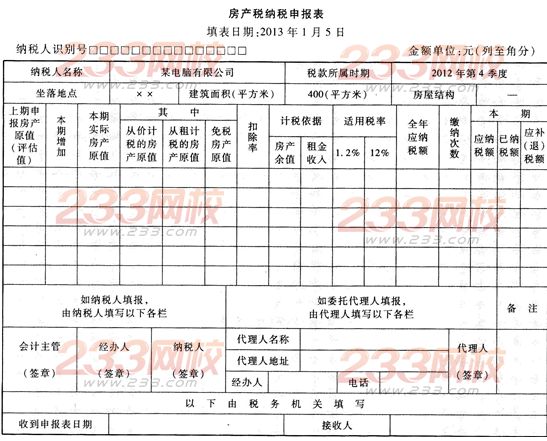 房产税纳税申报表
填表日期:2013年1月5日
纳税人识别号□□□□□□□□□□□□□□□ 金额单位:元(列至角分)
纳税人名称 某电脑有限公司 税款所属时期 2012年第4季度
坐落地点 ×× 建筑面积(平方米) 400(平方米) 房屋结构 —
上期申报房产原值(评估值) 本期增加 本期实际房产原值 其中 扣除率 计税依据 适用税率 全年应纳税额 缴纳次数 本期
从价计税的房产原值 从租计税的房产原值 免税房产原值 房产余值 租金收入 1.2% 12% 应纳税额 已纳税额 应补(退)税额
如纳税人填报,由纳税人填写以下各栏 如委托代理人填报,由代理人填写以下各栏 备注
会计主管(签章) 经办人(签章) 纳税人(签章) 代理人名称 代理人(签章)
代理人地址
经办人 电话
以下由税务机关填写
收到申报表日期 接收人
233网校
www.233.com
233网校
www.233.com
233网校
www.233.com
233网校
www.233.com
233网校
www.233.com
233网校
www.233.com